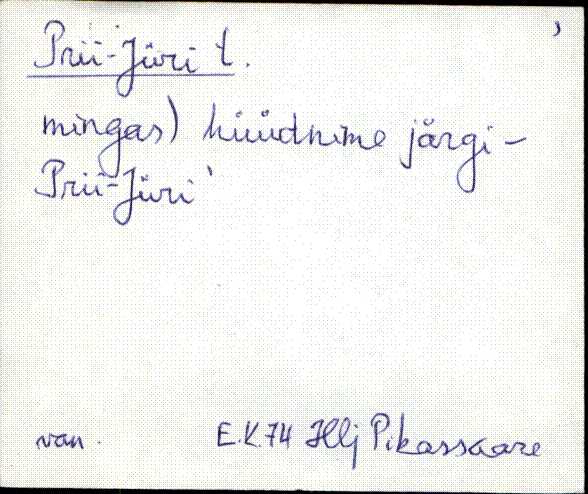 Prii-Jüri t.
mingas) hüüdnime järgi -
Prii-Jüri'
van. E.K.74 Hlj Pikassaare